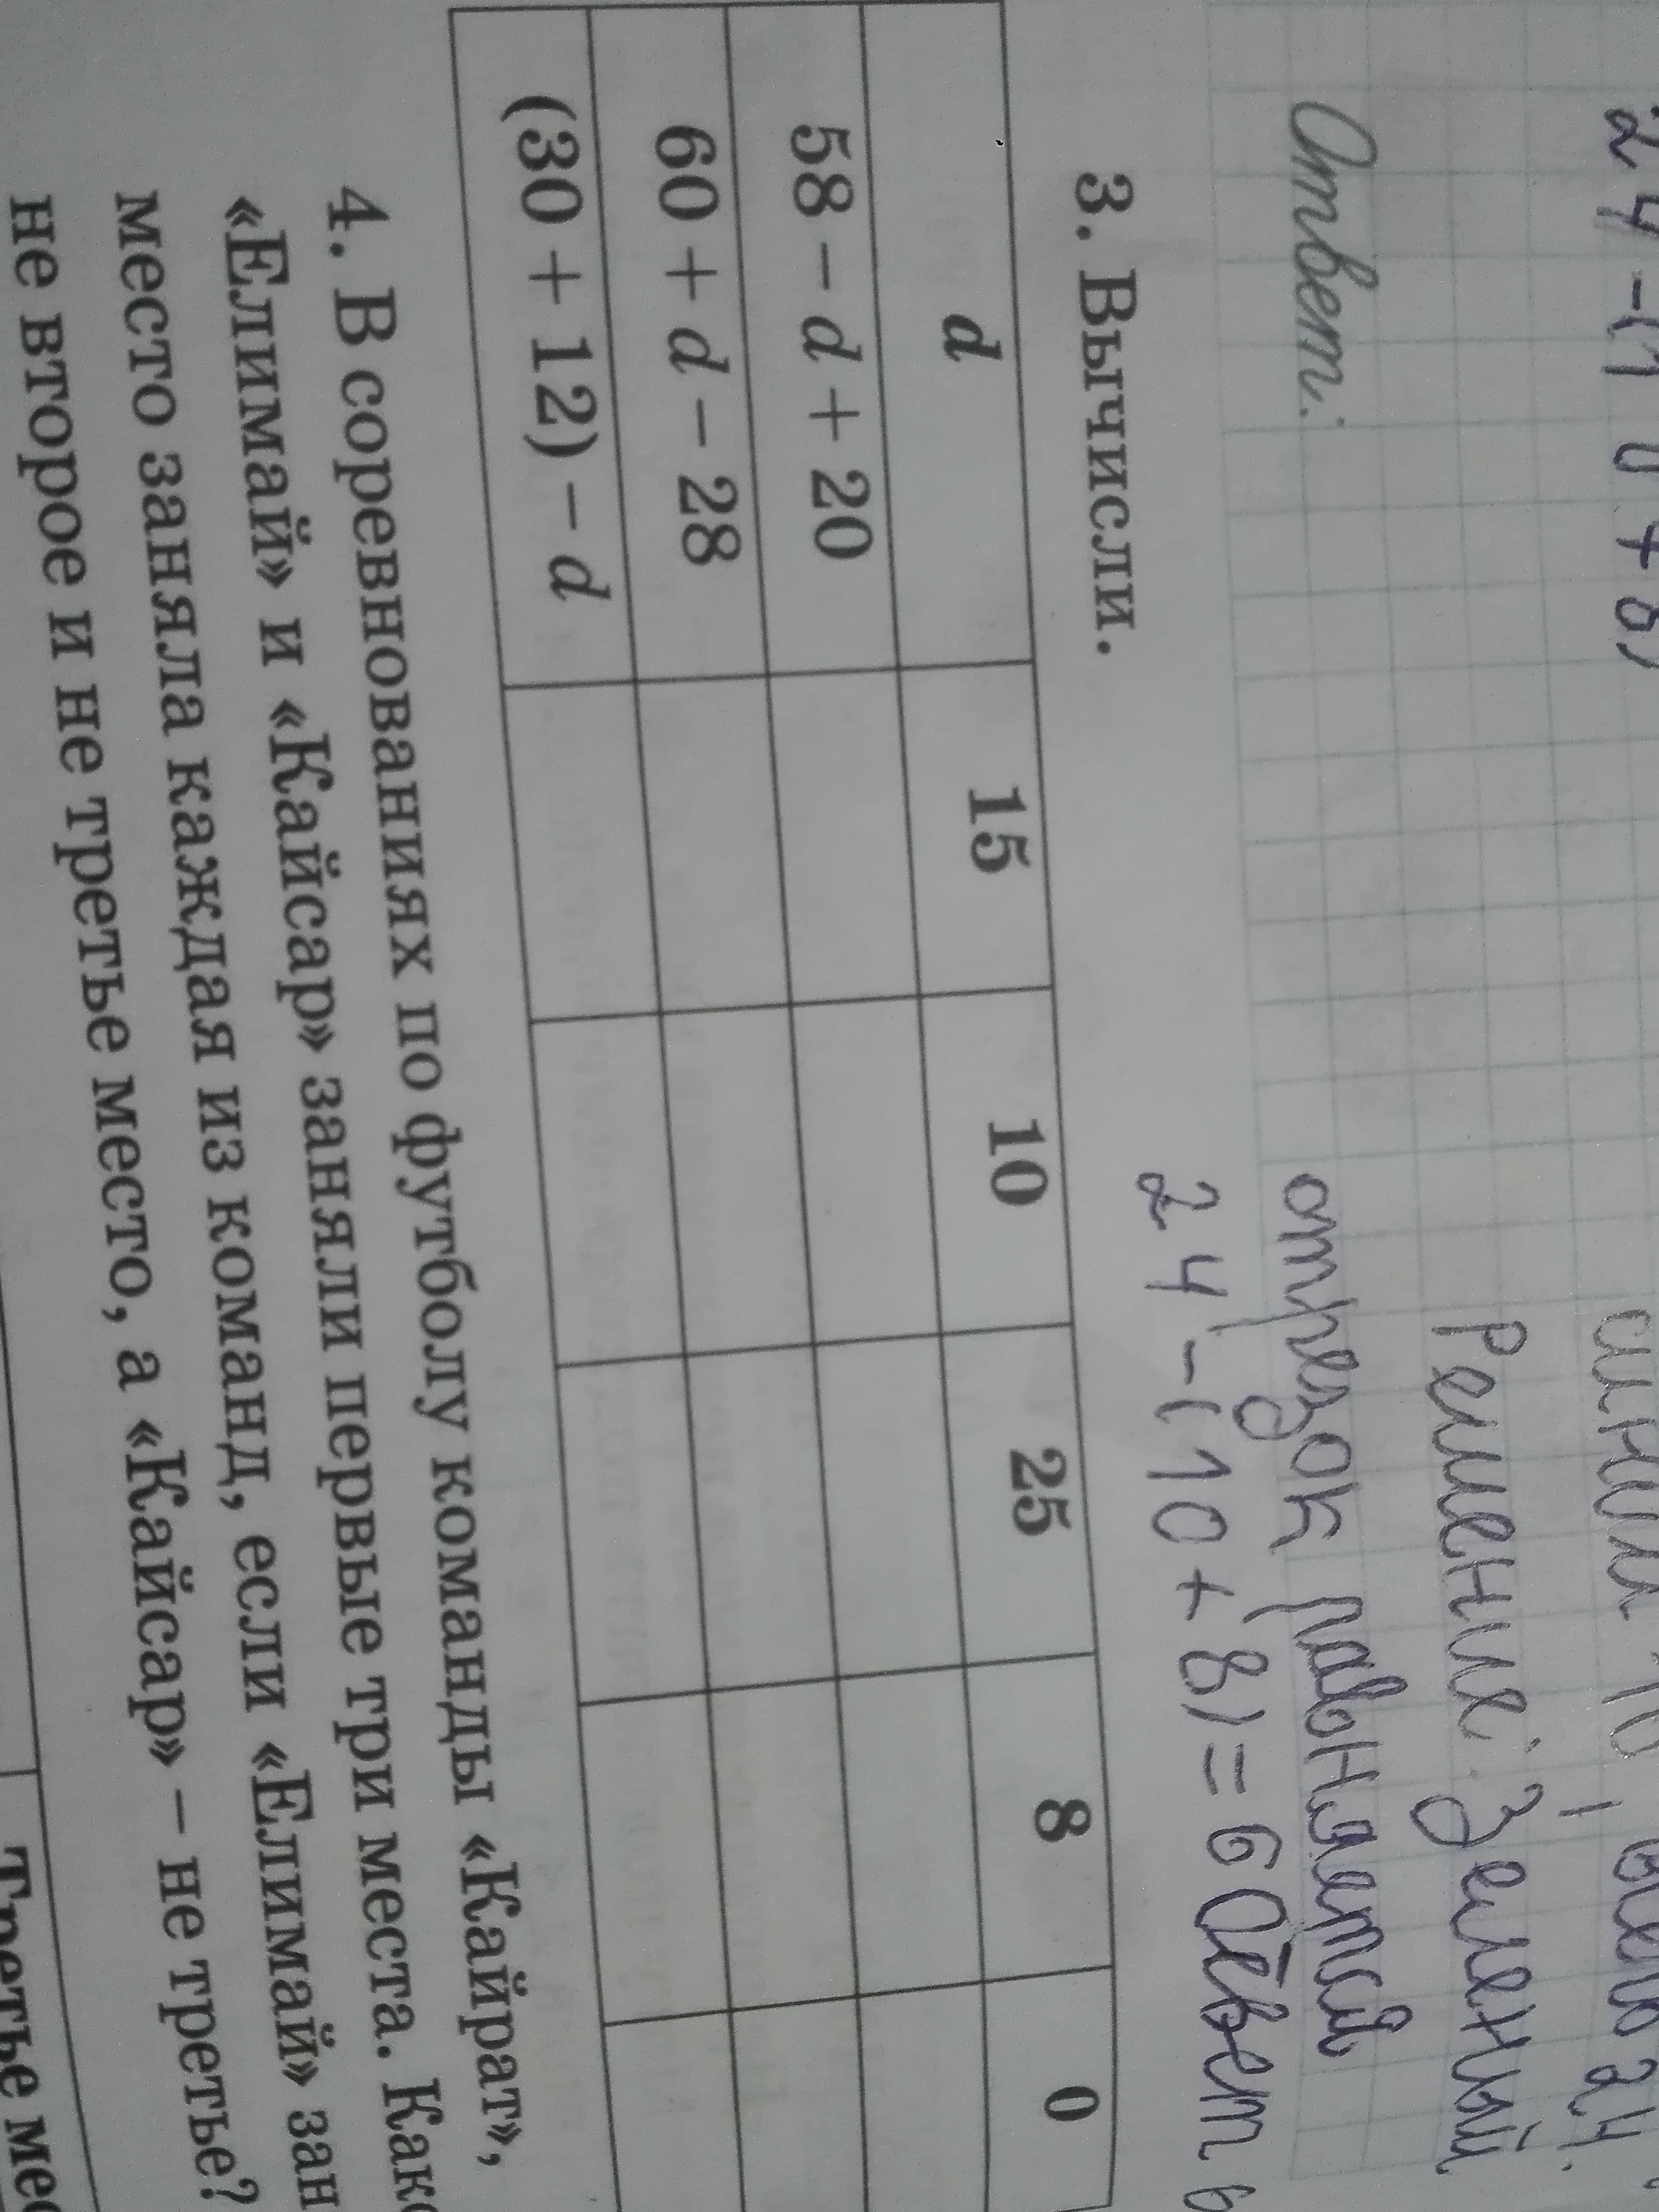 синий 10, всего 24.
Решение: Зеленый
24-(10+8)
Ответ:
отрезок равняется
24-(10+8)=6 Ответ 6
3. Вычисли.
d 15 10 25 8 0
58 – d + 20
60 + d – 28
(30 + 12) – d
4. В соревнованиях по футболу команды «Кайрат»,
«Елимай» и «Кайсар» заняли первые три места. Как
место заняла каждая из команд, если «Елимай» зан
не второе и не третье место, а «Кайсар» – не третье?
Третье мес